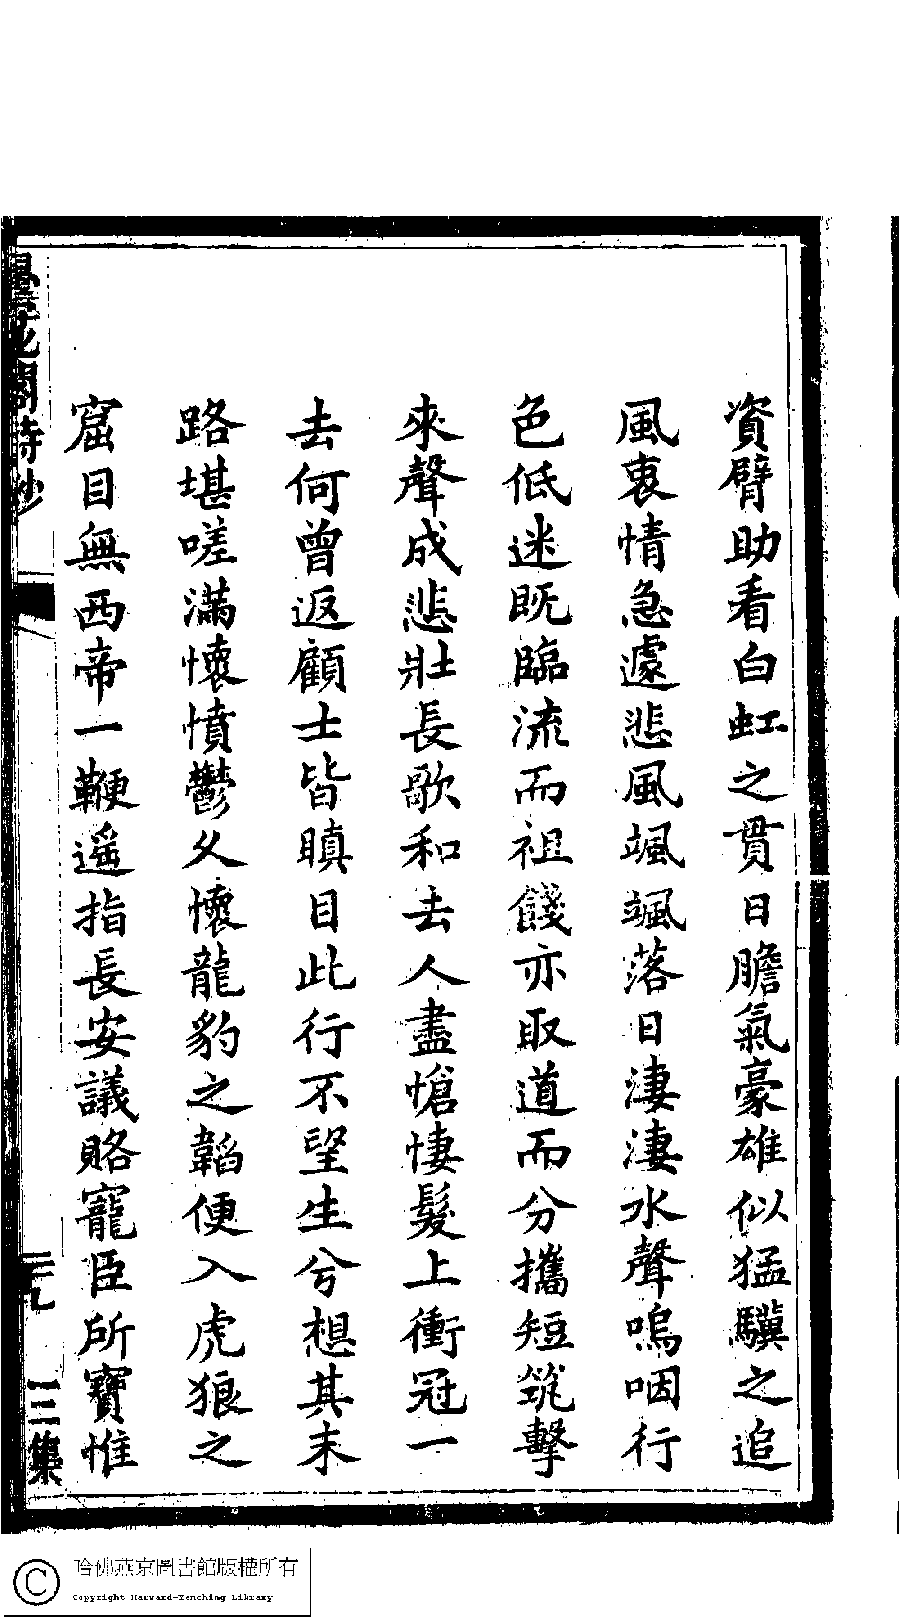 資臂助看白虹之貫日膽氣豪雄似猛驥之追
風衷情急遽悲風颯颯落日淒淒水聲嗚咽行
色低迷既臨流而祖餞亦取道而分攜短筑擊
來聲成悲壯長歌和去人盡愴悽髮上衝冠一
去何曾返顧士皆瞋目此行不望生兮想其末
路堪嗟滿懷憤鬱久懷龍豹之韜便入虎狼之
窟目無西帝一鞭遥指長安議賂寵臣所寶惟
閣詩鈔
三集
哈佛燕京圖書館版權所有
Copyright Harvard-Yenching Library